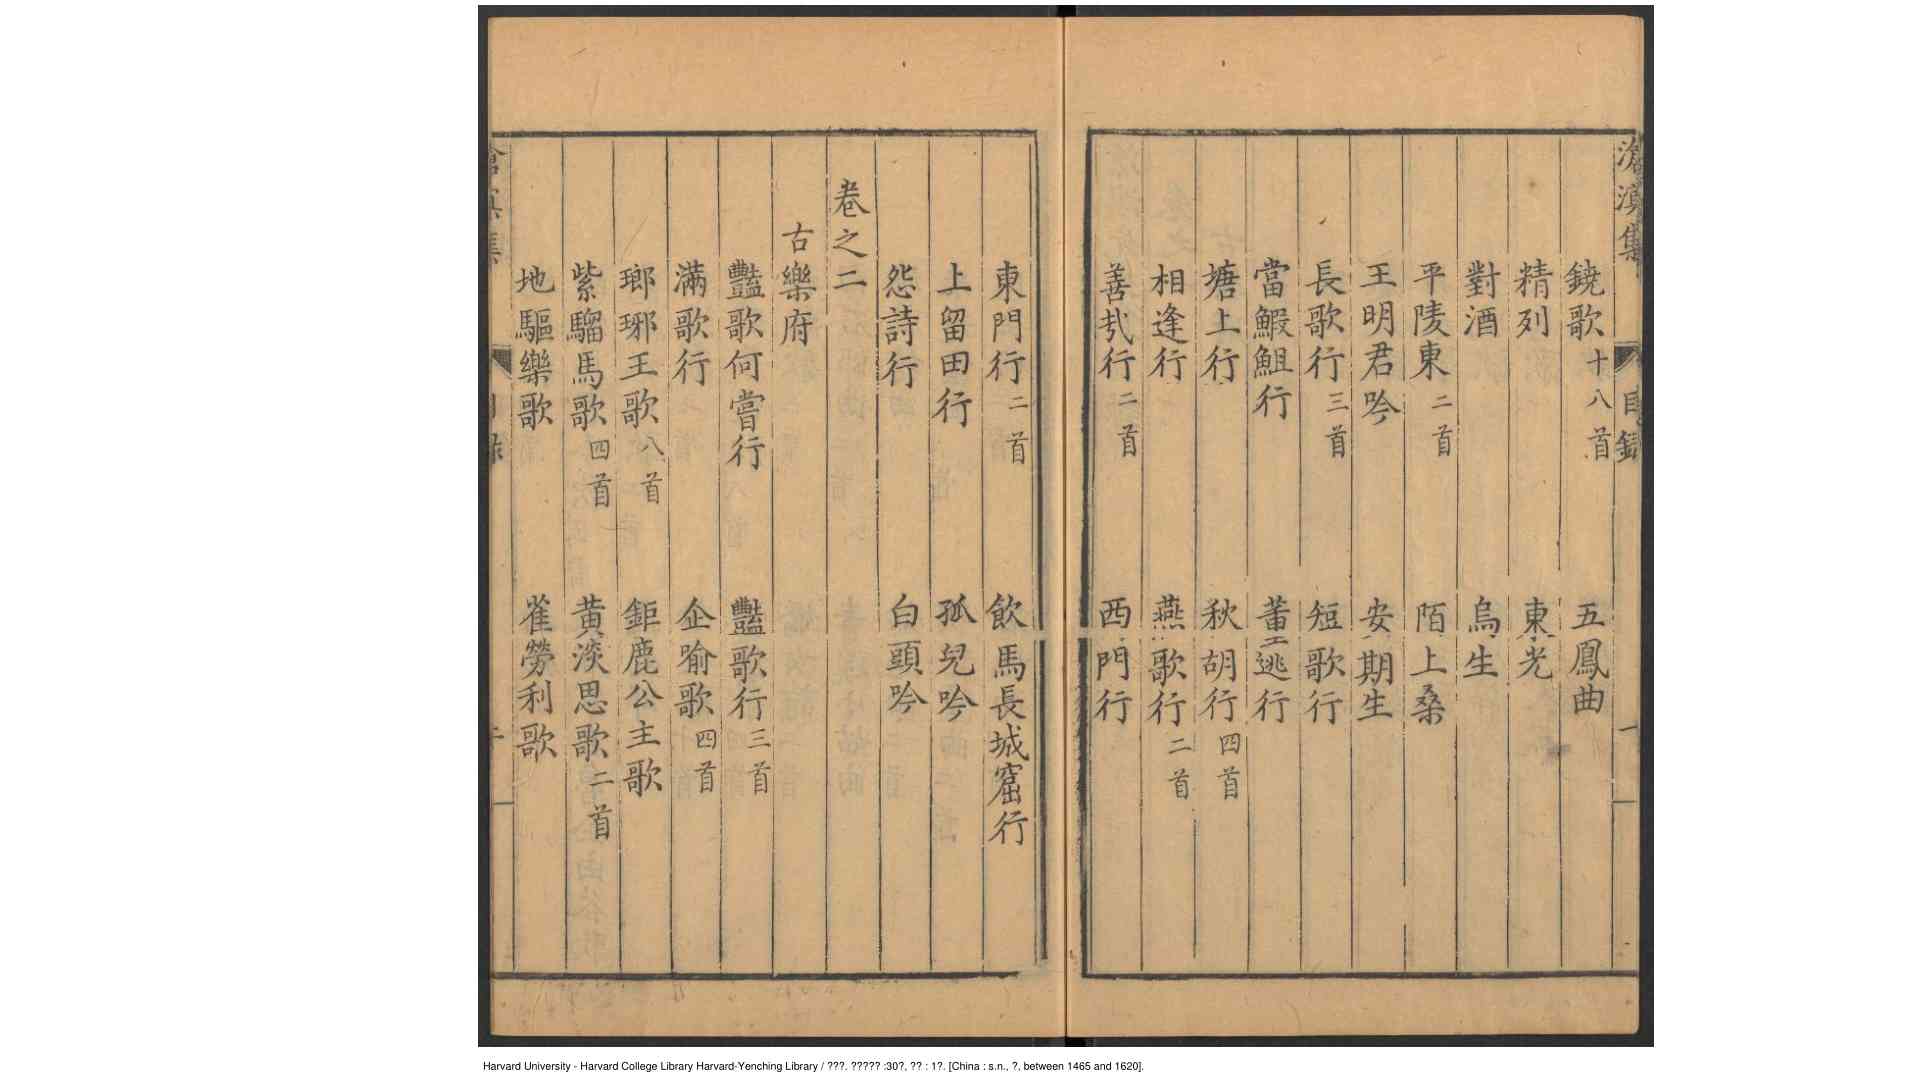 滄溟集 目錄 一
鐃歌十八首 五鳳曲
精列 東光
對酒 烏生
平陵東二首 陌上桑
王明君吟 安期生
長歌行三首 短歌行
當鰕䱇行 董逃行
塘上行 秋胡行四首
相逢行 燕歌行二首
善哉行二首 西門行
東門行二首 飲馬長城窟行
上留田行 孤兒吟
怨詩行 白頭吟
卷之二
古樂府
豔歌何嘗行 豔歌行三首
滿歌行 企喻歌四首
瑯琊王歌八首 鉅鹿公主歌
紫騮馬歌四首 黃淡思歌二首
地驅樂歌 雀勞利歌
Harvard University - Harvard College Library Harvard-Yenching Library / ???. ????? :30?, ?? : 1?. [China : s.n., ?, between 1465 and 1620].